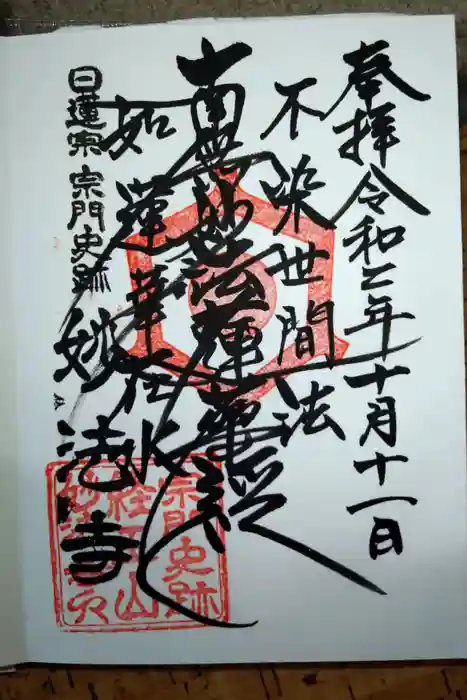 奉拝 令和二年十月十一日
不染世間法
南無妙法蓮華経
如蓮華在水
日蓮宗 宗門史跡
妙法寺
宗門史跡